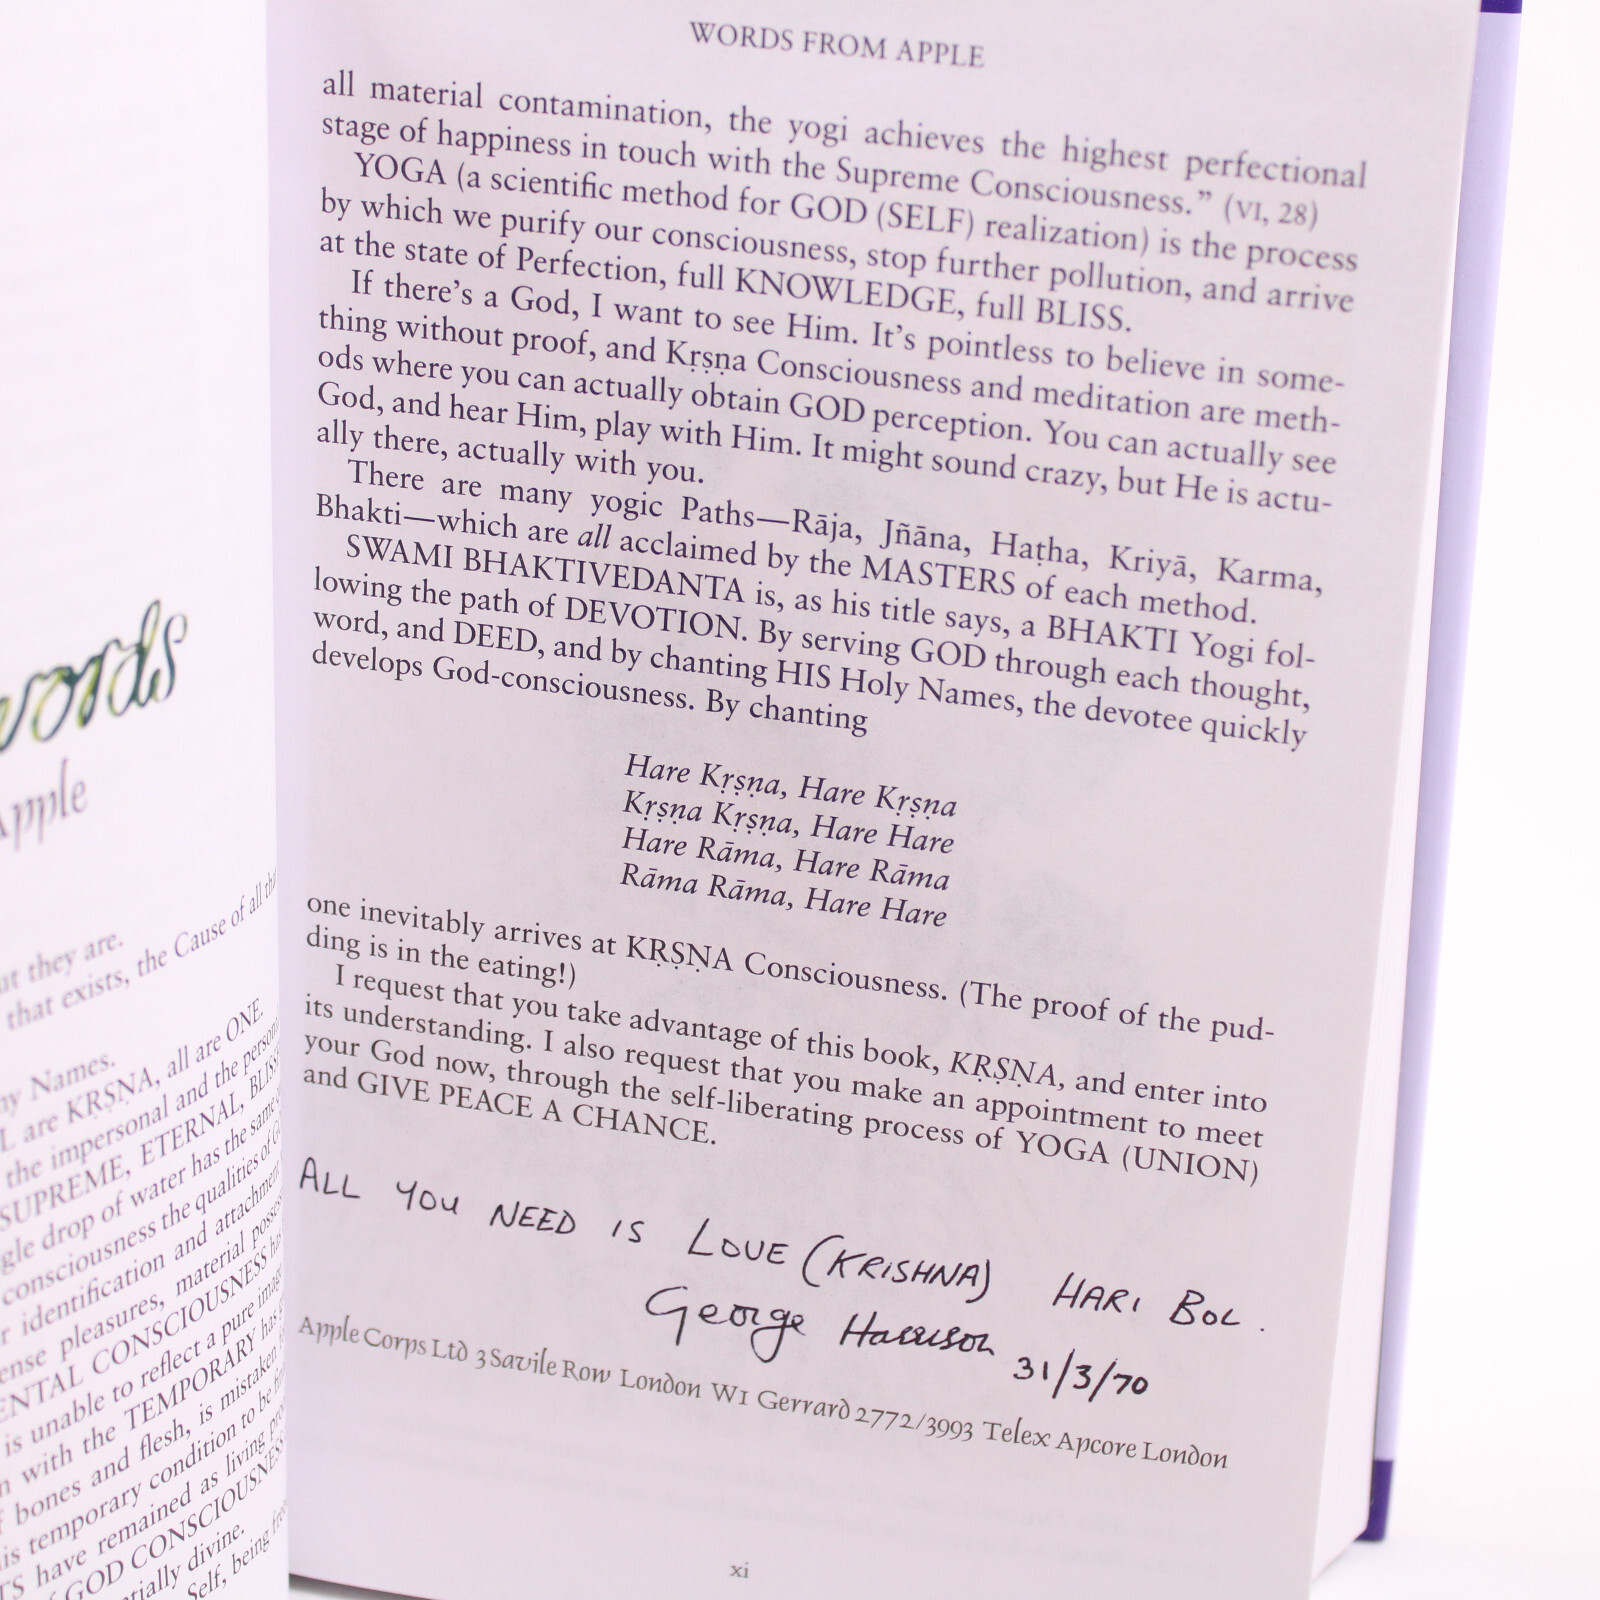 words
Apple
at they are.
that exists, the Cause of all
ny Names.
are KṚṢṆA, all are ONE.
the impersonal and the
SUPREME, ETERNAL, BLISS
drop of water has the same
consciousness the qualities of
identification and attachment
pleasures, material
CONSCIOUSNESS
is unable to reflect a pure image
with the TEMPORARY has
bones and flesh, is mistaken
temporary condition to be
have remained as living
GOD CONSCIOUSNESS
divine.
Self, being
WORDS FROM APPLE
all material contamination, the yogi achieves the highest perfectional
stage of happiness in touch with the Supreme Consciousness.” (VI, 28)
YOGA (a scientific method for GOD (SELF) realization) is the process
by which we purify our consciousness, stop further pollution, and arrive
at the state of Perfection, full KNOWLEDGE, full BLISS.
If there’s a God, I want to see Him. It’s pointless to believe in some-
thing without proof, and Kṛṣṇa Consciousness and meditation are meth-
ods where you can actually obtain GOD perception. You can actually see
God, and hear Him, play with Him. It might sound crazy, but He is actu-
ally there, actually with you.
There are many yogic Paths—Rāja, Jñāna, Haṭha, Kriyā, Karma,
Bhakti—which are all acclaimed by the MASTERS of each method.
SWAMI BHAKTIVEDANTA is, as his title says, a BHAKTI Yogi fol-
lowing the path of DEVOTION. By serving GOD through each thought,
word, and DEED, and by chanting HIS Holy Names, the devotee quickly
develops God-consciousness. By chanting
Hare Kṛṣṇa, Hare Kṛṣṇa
Kṛṣṇa Kṛṣṇa, Hare Hare
Hare Rāma, Hare Rāma
Rāma Rāma, Hare Hare
one inevitably arrives at KṚṢṆA Consciousness. (The proof of the pud-
ding is in the eating!)
I request that you take advantage of this book, KṚṢṆA, and enter into
its understanding. I also request that you make an appointment to meet
your God now, through the self-liberating process of YOGA (UNION)
and GIVE PEACE A CHANCE.
ALL YOU NEED IS LOVE (KRISHNA) HARI BOL.
George Harrison
31/3/70
Apple Corps Ltd 3 Savile Row London W1 Gerrard 2772/3993 Telex Apcore London
xi